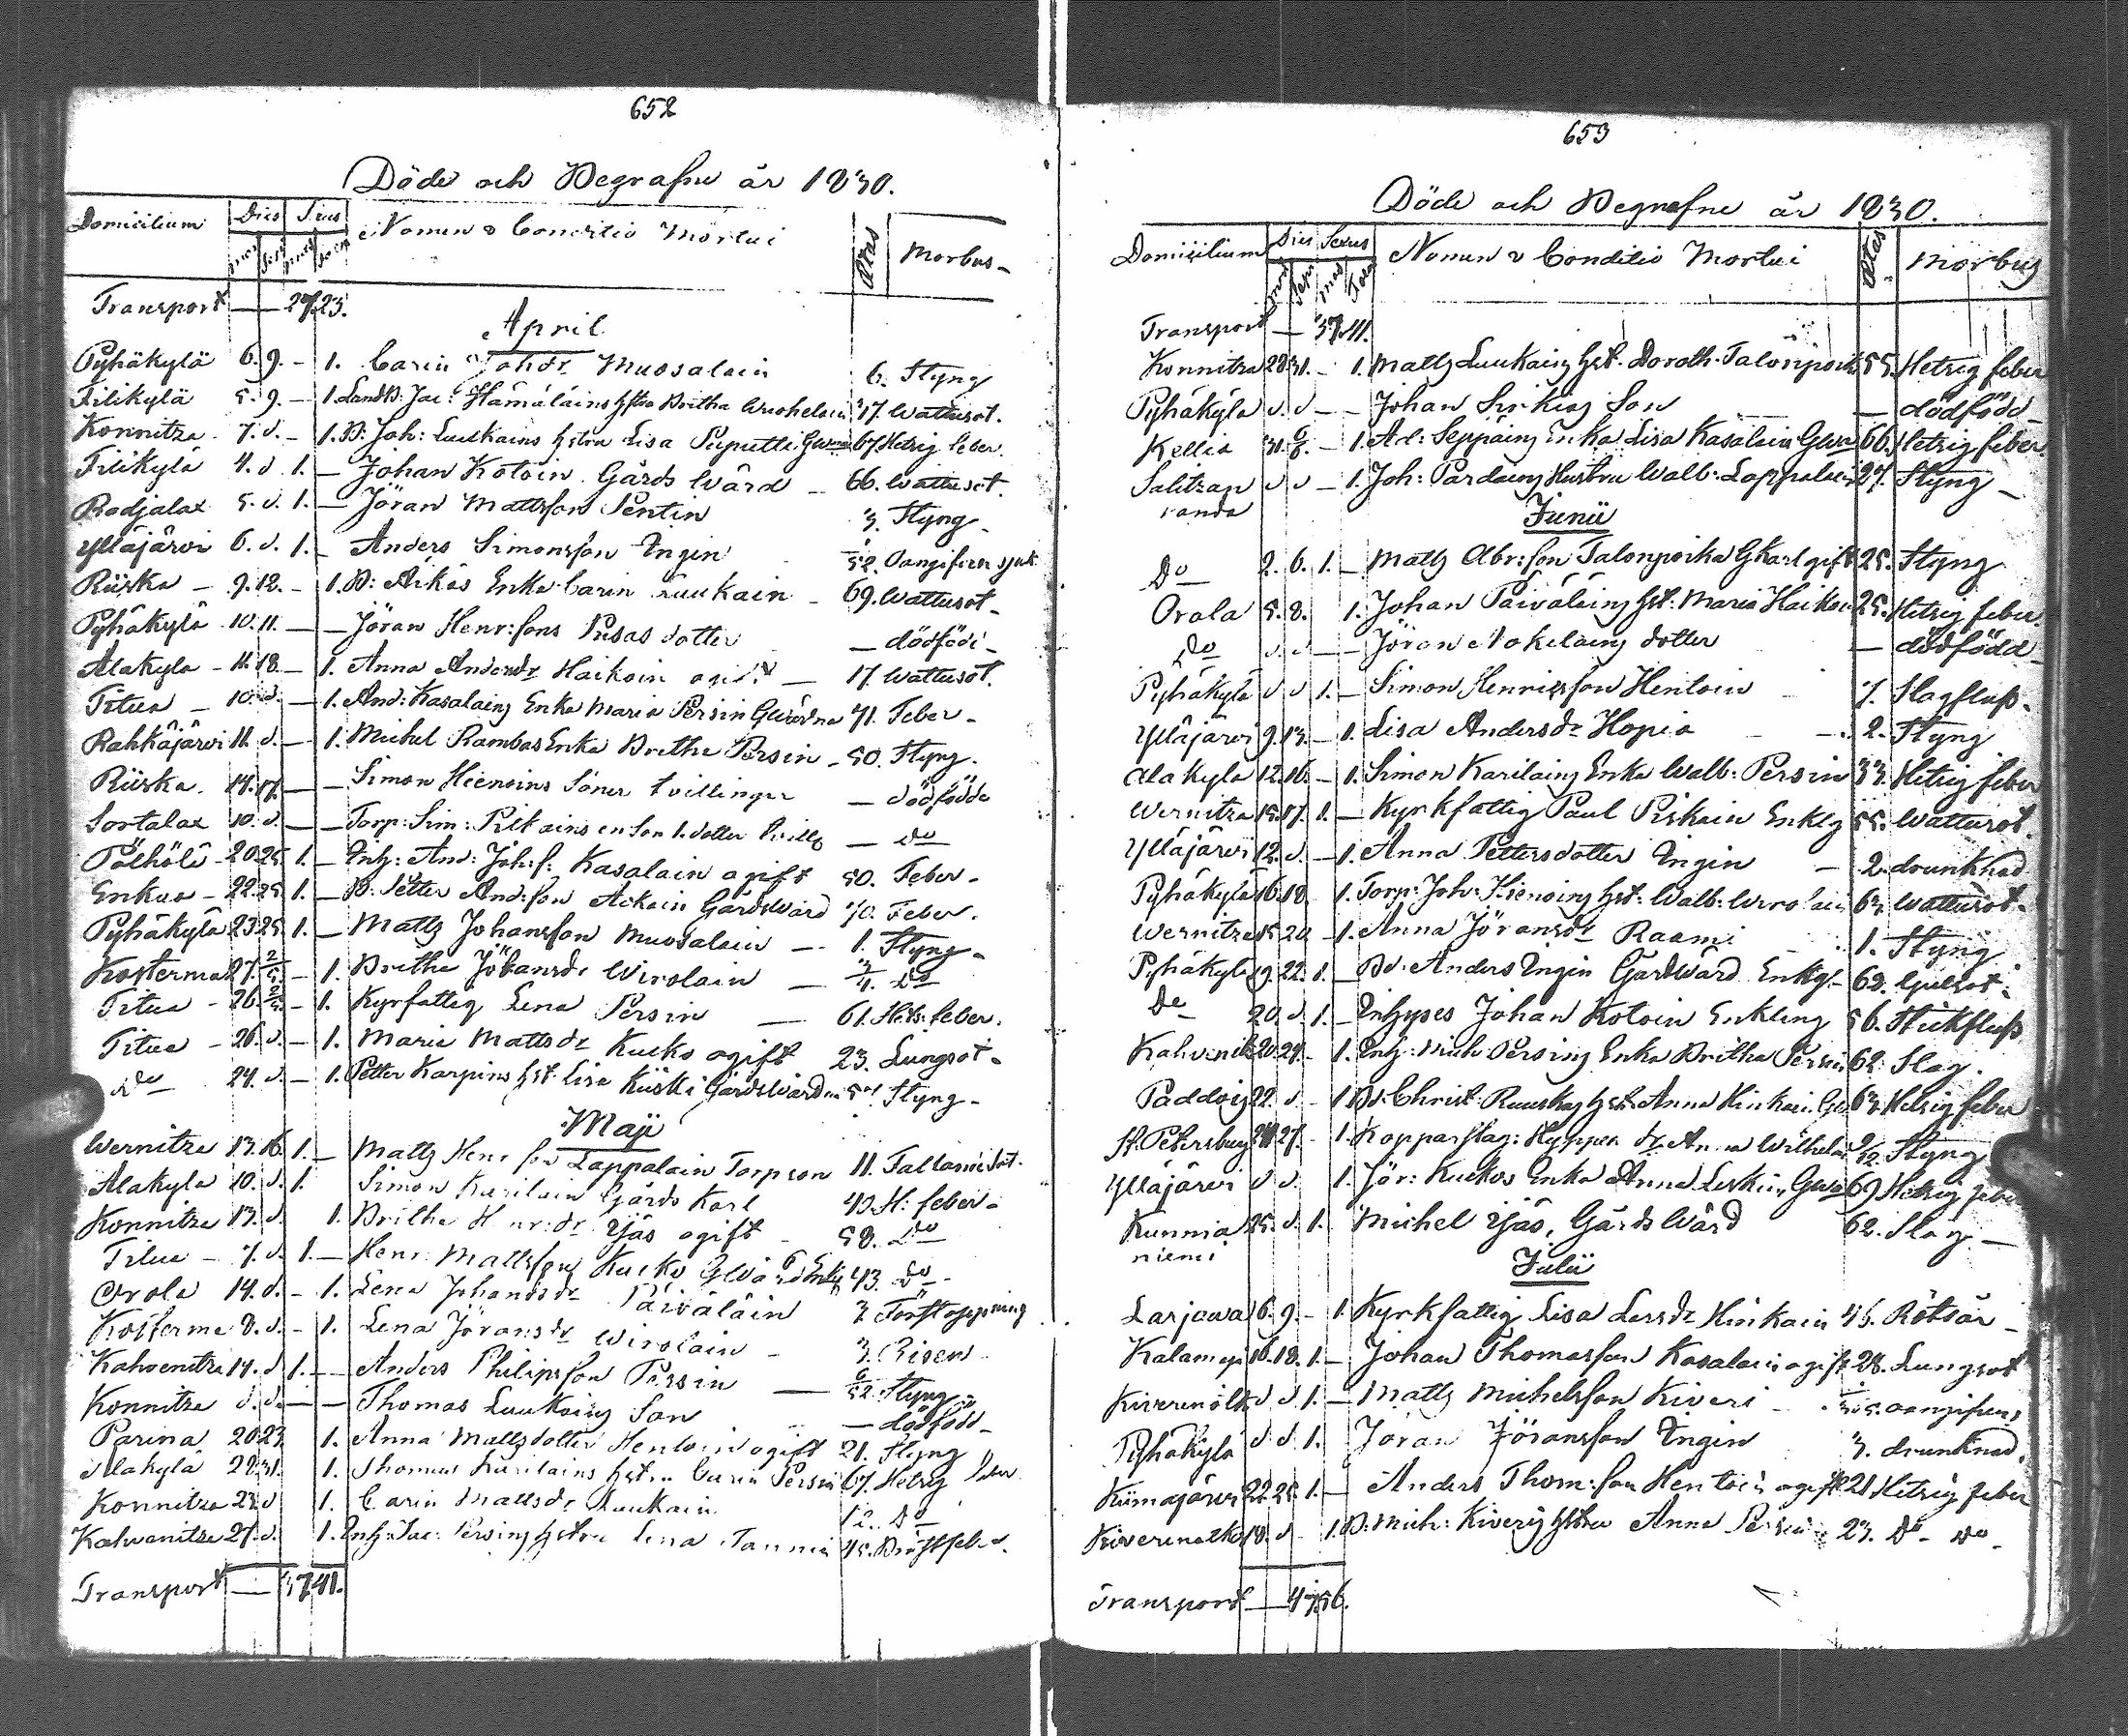 652
Döde och Begrafne år 1830.
Domicilium Dies Sexus Nomen & Conditio Mortui Ætas Morbus
mort sep mas foem
Transport — 27. 23.
April
Pyhäkylä 6. 9. – 1. Carin Johdr Muosalain 6. Styng
Filikylä 5. 9. – 1. LandtB: Jac: Hämäläins hstra Britha Wuohelain 47. Wattusot.
Konnitza 7. d. – 1. B: Joh: Luukains hstru Lisa Puputti Gwna 67 Hetsig feber.
Filikylä 4. d. 1. – Johan Kotoin Gårds Wärd – 66. Wattusot.
Rodjalax 5. d. 1. – Jöran Mattsson Pentin 3. Styng –
Ylläjärvi 6. d. 1. – Anders Simonsson Ingin 1/52. Oangifven sjuk
Riiska – 9. 12. – 1. B: Aikäs Enka Carin Luukain – 69. Wattusot –
Pyhäkylä 10. 11. – – Jöran Henr:sons Pusas dotter — dödfödd –
Alakyla – 11. 18. – 1. Anna Andersdr Haikoin ogift — 17. Wattusot.
Titua – 10. d. – 1. And: Kasalains Enka Maria Persin Gwärdna 71. Feber –
Rahkäjärvi 11. d. – 1. Michel Rambas Enka Britha Persin – 50. Styng.
Riiska. 14. 17. – – Simon Hienoins Söner tvillingar — dödfödde
Sortalax 10. d. – – Torp: Sim: Pilkains en Son 1. dotter tvill — do
Pölhölä – 20. 25. 1. – Inh: And: Joh:s: Kasalain ogift 50. Feber –
Enkua – 22. 25. 1. – B: Petter And:son Ackain Gårdswärd 70. Feber.
Pyhäkylä 23. 25. 1. – Matts Johansson Muosalain — 1. Styng –
Kosterma 27. 2/5. – 1. Britha Jöransdr Wirolain — 3/4. Do
Titua – 26. 2/5. – 1. Kyrfattig Lena Persin — 61. Hets: feber.
Titua – 26. d. – 1. Maria Mattsdr Kucko ogift 23. Lungsot –
Do 24. d. – 1. Petter Karpins hst. Lisa Kiiski Gårdswärdna Styng –
Maji
Wernitza 13. 16. 1. – Matts Henr son Lappalain Torpson 11. Fallande Sot.
Alakyla 10. d. 1. Simon Karilain Gårds Karl 40. H: feber –
Konnitza 13. d. 1. Britha Henr:dr Yjäs ogift – 58. Do
Titua – 7. d. 1. – Henr: Mattsson Kucko Gwärd Enkl 43. do –
Orola 14. d. – 1. Lena Johansdr Päiväläin 3. Förstoppning
Kosterma 8. d. – 1. Lena Jöransdr Wirolain – 3. Risen
Kahvenitza 14. d 1. – Anders Philipsson Persin — 6/52. Styng
Konnitza d. d. – – Thomas Luukains Son — dödfödd –
Parina 20 23 1. Anna Mattsdotter Hentoin ogift 21. Styng
Alakylä 28. 31. 1. Thomas Karilains hstru Carin Persin 67. Hetsig feber
Konnitza 23. d 1. Carin Mattsdr Luukain 12. Do
Kahvenitza 27. d. 1. Inh: Jac: Persins hstru Lena Tannia 45. Bröstfeber.
Transport — 37. 41.
653
Döde och Begrafne år 1830.
Domicilium Dies Sexus Nomen & Conditio Mortui Ætas Morbus
mort sepu mas Foem
Transport — 37. 41.
Konnitza 28 31. – 1. Matts Luukains hst. Doroth. Talonpoik 55. Hetsig feber
Pyhäkyla d. d – – Johan Sirkias Son — dödfödd
Kellia 31. 6/6. – 1. Ad: Seppäins Enka Lisa Kasalain Gwa 66. Hetsig feber.
Salitzan d d – 1. Joh: Pardains Hustru Walb: Lappalain 27. Styng –
randa
Junii
Do 2. 6. 1. – Matts Abr:son Talonpoika Gkarl gift 25. Styng
Orala 5. 8. 1. Johan Päiväläins hst: Maria Haikoi 25. Hetsig feber.
Do d. d. – – Jöran Nokelains dotter — dödfödd
Pyhäkylä d d 1. – Simon Henricsson Hentoin 7. Slagfluss.
Ylläjärvi 9. 13. – 1. Lisa Andersdr Hopia 2. Styng
Alakylä 12. 16. – 1. Simon Karilains Enka Walb: Persin 33. Hetsig feber
Wernitza 15. 17. 1. – Kyrkfattig Paul Piskain Enklg 55. Wattusot.
Ylläjärvi 12. d. – 1. Anna Pettersdotter Ingin – 2. drunknad
Pyhäkylä 16. 18. 1. Torp: Joh: Hienoins hst: Walb: Wirolain 63. Wattusot.
Wernitza 15. 20. – 1. Anna Jöransdr Raami 1. Styng
Pyhäkylä 19. 22. 1. – Bd: Anders Ingin Gårdwärd Enklg – 62. Gulsot.
Do 20. d. 1. – Inhyses Johan Kotoin Enkling 56. Stickfluss
Kahvenitz 20. 24. – 1. Inh: Mich: Persins Enka Britha Persin 62. Slag.
Paddois 22. d. – 1. Bd: Christ: Ruuskas hst: Anna Hinkain Gw 63. Hetsig feber
St. Petersburg 24 27. – 1. Kopparslag: Hyppen dr Anna Wilhelm 2/52. Styng
Ylläjärvi d d. 1. Jör: Kuckos Enka Anna Leskin, Gwa 69 Hetsig feber
Kunnia 25. d. 1. Michel Yjäs, Gårds Wärd 62. Slag. —
niemi
Julii
Larjawa 6. 9. – 1. Kyrkfattig Lisa Larsdr Hinkain 45. Rötsår –
Kalamaja 16. 18. 1. – Johan Thomasson Kasalain ogift 28. Lungsot
Kiverinotk d d 1. – Matts Michelsson Kiveri – oangifven
Pyhäkyla d d 1. Jöran Jöransson Ingin 3. drunknad.
Kiimajärvi 22. 25. 1. – Anders Thom:son Hentoin ogift 21 Hetsig feber
Kiverinotko 18. d – 1. B: Mich: Kiveris hstru Anna Persin 23. Do – Do –
Transport — 47. 56.